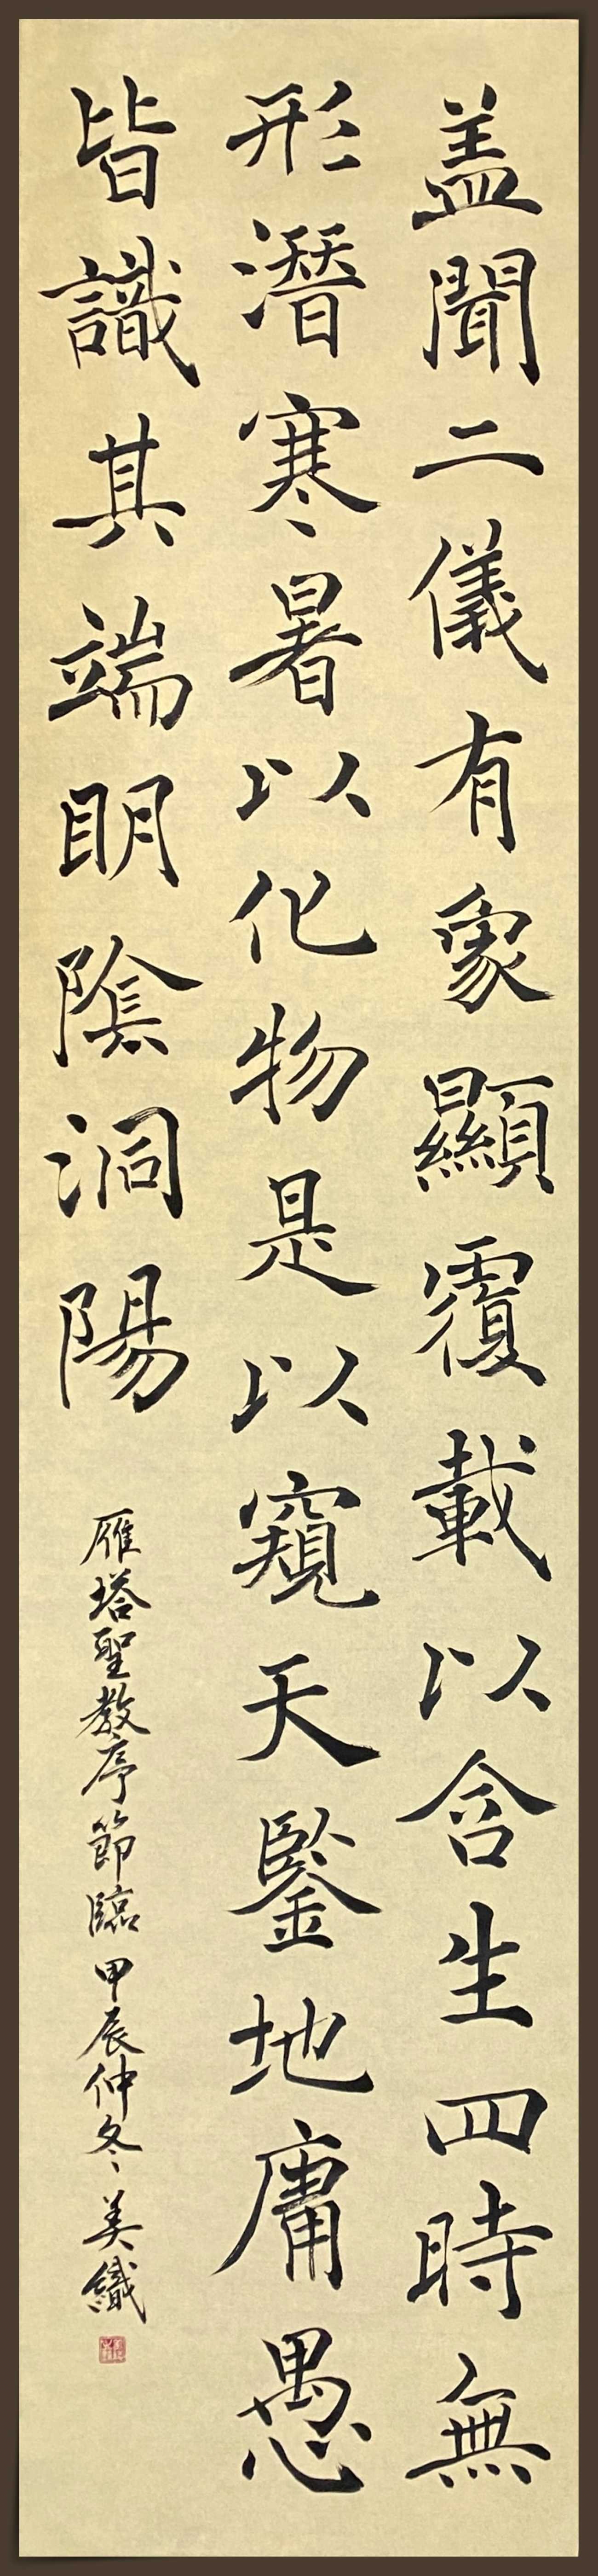 盖聞二儀有象顯覆載以含生四時無
形潛寒暑以化物是以窺天鑒地庸愚
皆識其端明陰洞陽
雁塔聖教序節臨甲辰仲冬美鐵